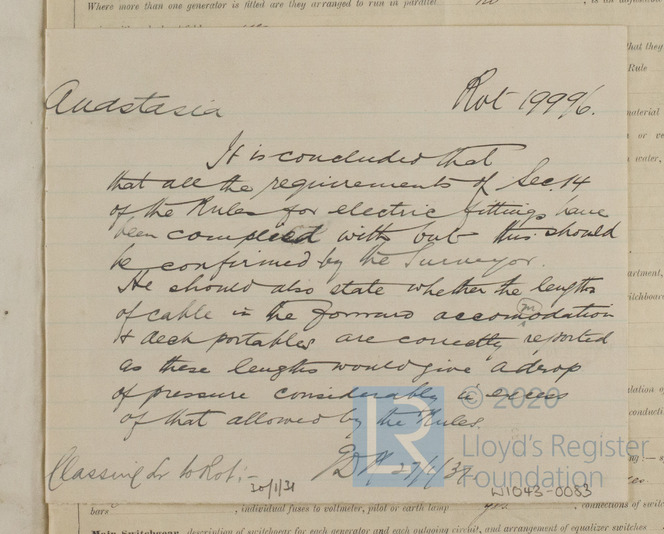 Where more than one generator is fitted are they arranged to run in parallel
Anastasia Rot 19996.
It is concluded that
that all the requirements of Sec. 14
of the Rules for electric fittings have
been complied with but this should
be confirmed by the Surveyor.
He should also state whether the lengths
of cable in the forward accomodation
m
& deck portables are correctly reported
as these lengths would give a drop
of pressure considerably in excess
of that allowed by the Rules.
Classing Lr to Rot:-
30/1/31
© 2020
LR
Lloyd's Register
Foundation
W1043-0083
that they
Rule
material
or
water,
bars , individual fuses to voltmeter, pilot or earth lamp yes , connections of switches
Main Switchgear, description of switchgear for each generator and each outgoing circuit, and arrangement of equalizer switches